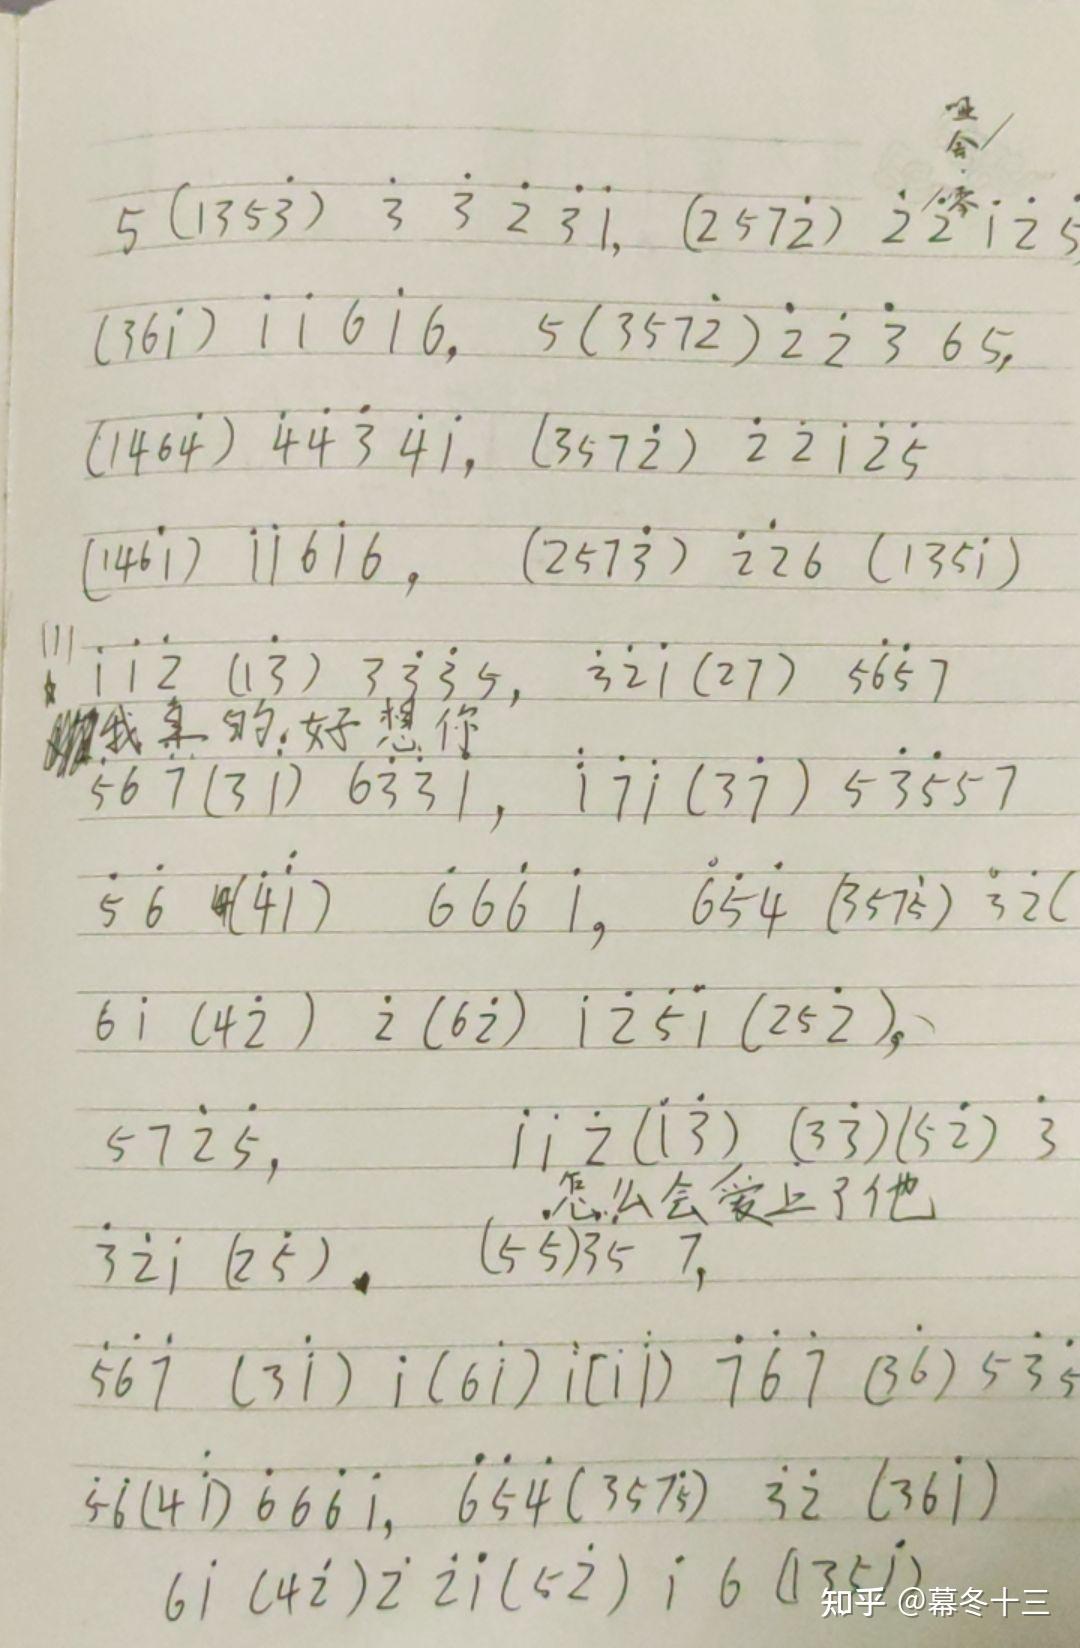 哑舍·零
5 (1353̇) 3̇ 3̇ 2̇ 3̇ 1̇, (2572̇) 2̇ 2̇ 1̇ 2̇ 5̇
(361̇) 1̇ 1̇ 6 1̇ 6, 5 (3572̇) 2̇ 2̇ 3̇ 6 5,
(1464̇) 4̇ 4̇ 3̇ 4̇ 1̇, (3572̇) 2̇ 2̇ 1̇ 2̇ 5̇
(1461̇) 1̇ 1̇ 6 1̇ 6, (2573̇) 2̇ 2̇ 6 (1351̇)
1̇ 1̇ 2̇ (13̇) 3 3̇ 3̇ 5, 3̇ 2̇ 1̇ (27) 5 6̇ 5̇ 7
我真的好想你
5̇ 6̇ 7̇ (31̇) 6 3̇ 3̇ 1̇, 1̇ 7̇ 1̇ (37̇) 5 3̇ 5̇ 5 7
5̇ 6̇ (4̇1̇) 6̇ 6 6̇ 1̇, 6̇ 5̇ 4̇ (3575̇) 3̇ 2̇ (
6 1̇ (42̇) 2̇ (62̇) 1̇ 2̇ 5̇ 1̇ (252̇),
5 7 2̇ 5̇, 1̇ 1̇ 2̇ (1̇3̇) (33̇) (52̇) 3̇
怎么会爱上了他
3̇ 2̇ 1̇ (25̇). (55) 3 5 7,
5̇ 6̇ 7̇ (31̇) 1̇ (61̇) 1̇ (1̇1̇) 7̇ 6̇ 7̇ (36̇) 5 3̇ 5̇
5̇ 6̇ (41̇) 6̇ 6 6̇ 1̇, 6̇ 5̇ 4̇ (3575̇) 3̇ 2̇ (361̇)
6 1̇ (42̇) 2̇ 2̇ 1̇ (52̇) 1̇ 6 (1351̇)
知乎 @幕冬十三